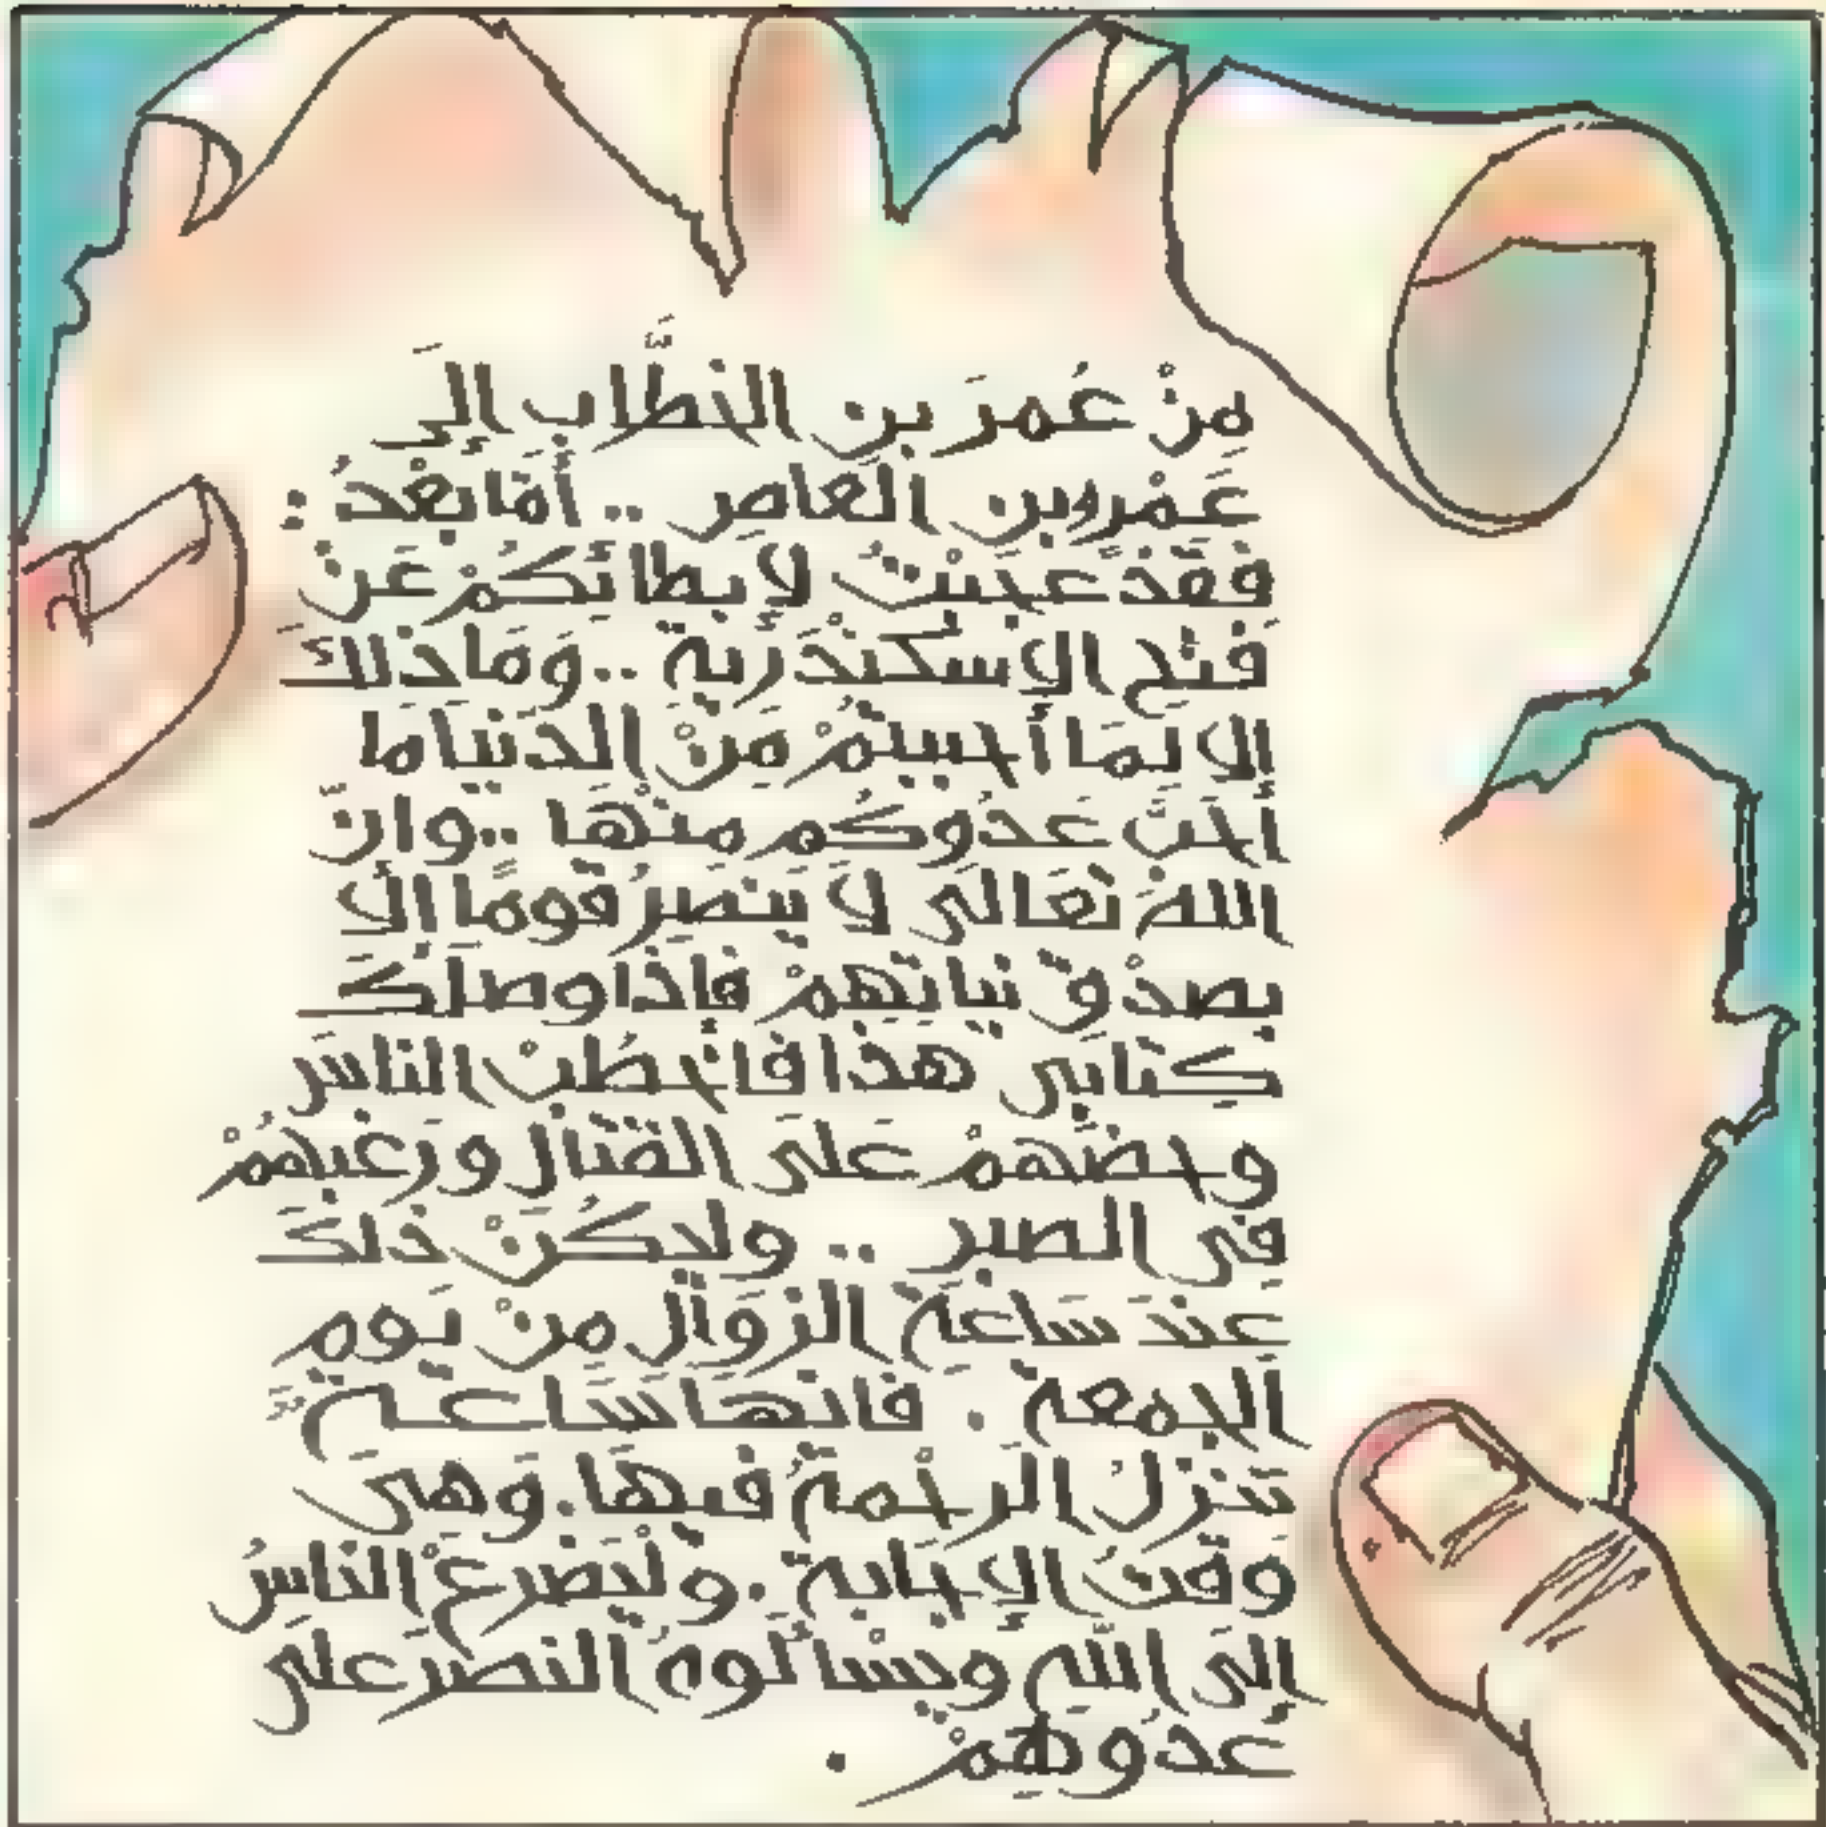 مِنْ عُمرَ بنِ الخطَّاب إلىَ
عَمْرو بنِ العَاصِ .. أمَّا بعْدُ :
فَقَدْ عَجبْتُ لإبطائِكُمْ عَنْ
فَتْح الإسكنْدَرية .. وَمَا ذلكَ
إلا لَمَا أحببتمُ مِنْ الدنيَا مَا
أحَبَّ عَدُوكُم منْهَا .. وانَّ
اللهَ تَعَالَى لاَ يَنصرُ قومًا إلا
بصدْقِ نياتِهِمْ فإذَا وصلكَ
كِتَابِى هَذا فاخطُبْ الناسَ
وحضهمْ عَلَى القتَال ورَغبهُمْ
فِى الصبرِ .. وليكُنْ ذلكَ
عِندَ سَاعَةِ الزوَالِ مِنْ يَومِ
الجمعة . فانهَا سَاعَةٌ
تَنزلُ الرحْمةُ فيهَا . وَهىَ
وَقتُ الإجَابة . وليَضرعْ الناسُ
إلَى اللَّهِ ويسْألوهُ النصْرَ على
عَدُوهِمْ .